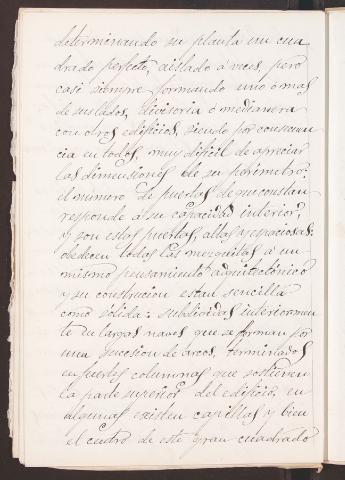 determinando su planta un cua
drado perfecto, aislado á veces, pero
casi siempre formando uno ó mas
de sus lados, divisoria ó medianera
con otros edificios, siendo por consecuen
cia en todos, muy dificil de apreciar
las dimensiones de su perimetro:
el número de puertas de que constan
responde á su capacidad interior,
y son estas puertas, altas y espaciosas:
obedecen todas las mezquitas á un
mismo pensamiento arquitectónico
y su construcion es tan sencilla
como sólida: subdividas interiormen
te en largas naves que se forman por
una sucesion de árcos, terminados
en fuertes columnas que sostienen
la parte superior del edificio. en
algunas existen capillas y bien
el centro de este gran cuadrado